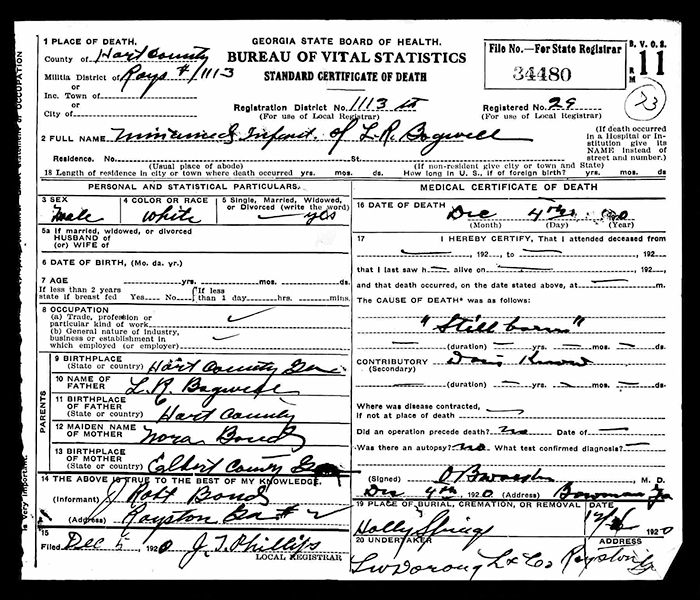 1 PLACE OF DEATH.
County of Hart County
Militia District of Roys # 1113
or
Inc. Town of
or
City of
GEORGIA STATE BOARD OF HEALTH.
BUREAU OF VITAL STATISTICS
STANDARD CERTIFICATE OF DEATH
Registration District No. 1113
(For use of Local Registrar)
File No.—For State Registrar
34480
Registered No. 29
(For use of Local Registrar)
B. V. O. S.
RM 11
23
2 FULL NAME Infant of L. R. Bagwell
(If death occurred in a Hospital or Institution give its NAME instead of street and number.)
Residence. No. St.
(Usual place of abode) (If non-resident give city or town and State)
18 Length of residence in city or town where death occurred yrs. mos. ds. How long in U. S., if of foreign birth? yrs. mos. ds.
PERSONAL AND STATISTICAL PARTICULARS.
3 SEX
Male
4 COLOR OR RACE
White
5 Single, Married, Widowed, or Divorced (write the word)
yes
5a If married, widowed, or divorced
HUSBAND of
(or) WIFE of
6 DATE OF BIRTH, (Mo. da. yr.)
7 AGE yrs. mos. ds.
If less than 2 years state if breast fed Yes No
If less than 1 day hrs. mins.
8 OCCUPATION
(a) Trade, profession or particular kind of work
(b) General nature of industry, business or establishment in which employed (or employer)
PARENTS
9 BIRTHPLACE (State or country) Hart County
10 NAME OF FATHER L. R. Bagwell
11 BIRTHPLACE OF FATHER (State or country) Hart County
12 MAIDEN NAME OF MOTHER Nora Bond
13 BIRTHPLACE OF MOTHER (State or country) Elbert County Ga
14 THE ABOVE IS TRUE TO THE BEST OF MY KNOWLEDGE.
(Informant) J Robt Bond
(Address) Royston Ga # 2
15
Filed Dec 5, 1920 J. T. Phillips
LOCAL REGISTRAR
MEDICAL CERTIFICATE OF DEATH
16 DATE OF DEATH
Dec 4th
(Month) (Day) (Year)
17 I HEREBY CERTIFY, That I attended deceased from
, 192 , to , 192
that I last saw h alive on , 192
and that death occurred, on the date stated above, at m.
The CAUSE OF DEATH* was as follows:
"Still born"
(duration) yrs. mos. ds.
CONTRIBUTORY Know
(Secondary)
(duration) yrs. mos. ds.
Where was disease contracted, if not at place of death
Did an operation precede death? no Date of
Was there an autopsy? no What test confirmed diagnosis?
(Signed) M. D.
Dec 4th 1920 (Address) Bowman Ga
19 PLACE OF BURIAL, CREMATION, OR REMOVAL DATE
Holly Springs 1920
20 UNDERTAKER ADDRESS
& Co Royston Ga